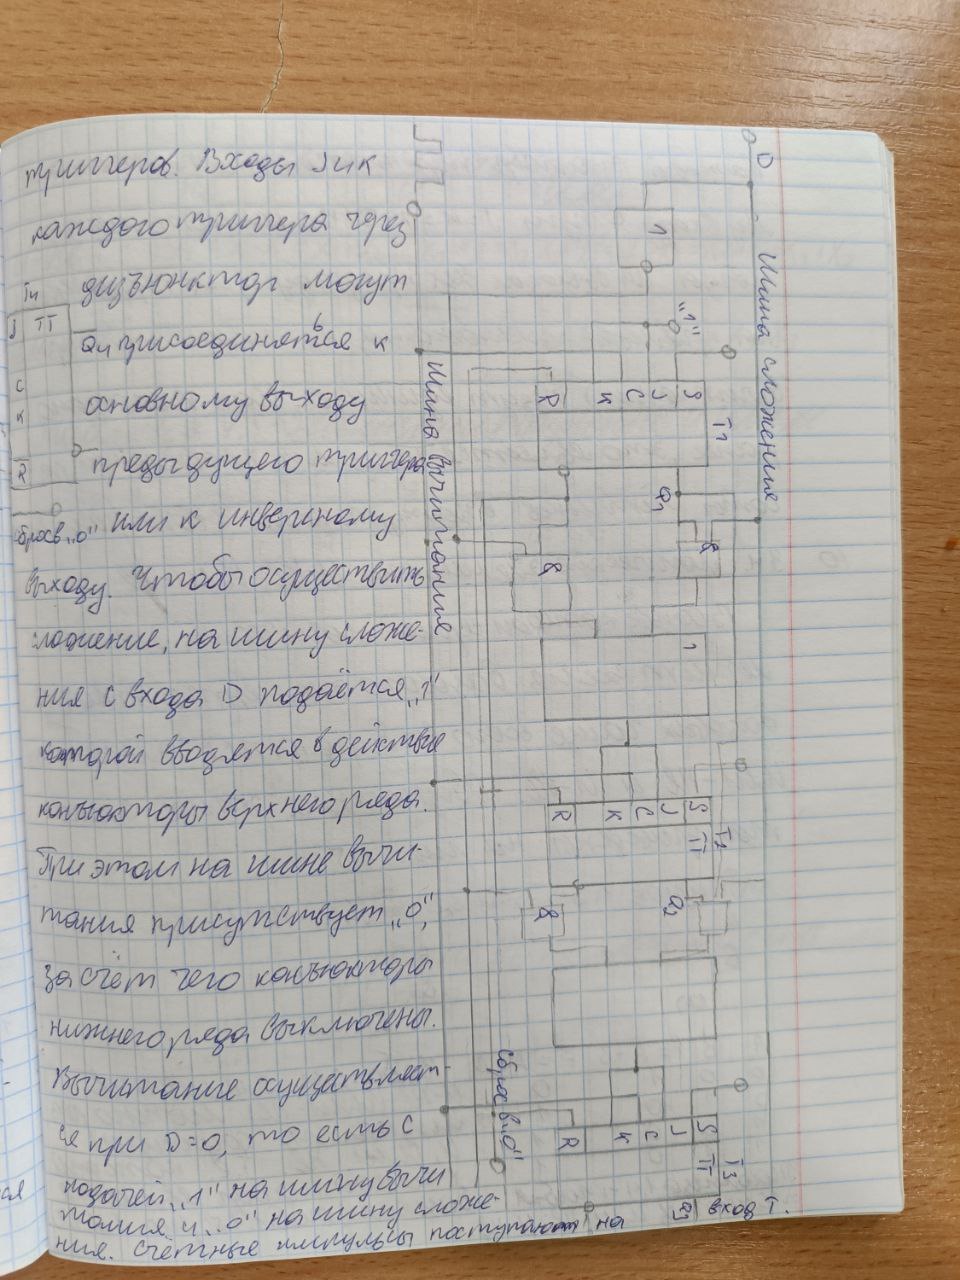 триггеров. Входы J и К
каждого триггера через
дизъюнктор могут
присоединяться к
основному выходу
предыдущего триггера
или к инверсному
выходу. Чтобы осуществить
сложение, на шину сложе-
ния с входа D подаётся „1"
которой вводятся в действие
конъюкторы верхнего ряда.
При этом на шине вычи-
тания присутствует „0",
за счёт чего конъюкторы
нижнего ряда выключены.
Вычитание осуществляет-
ся при D=0, то есть с
подачей „1" на шину вычи
тания и „0" на шину сложе-
ния. Счётные импульсы поступают на вход Т.
Tи
J TT
C
K
R
Qи
сброс в „0"
D
Шина сложения
1
"1"
S
J
C
K
R
T1
Q1
&
&
1
Шина вычитания
S
J
C
K
R
T2
TT
Q2
&
S
J
C
K
R
T3
TT
Q3
Сброс в „0"